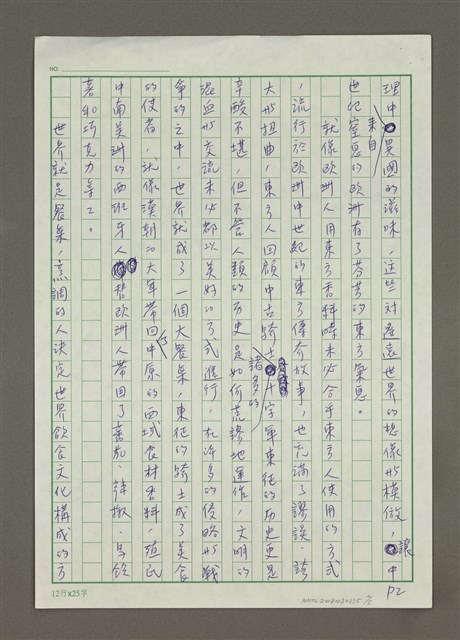 NO:
理中來自異國的滋味,這些對遙遠世界的想像形模倣,讓中
世紀窒息的歐洲有了芬芳的東方氣息。
就像歐洲人用東方香料時未必合乎東方人使用的方式
,流行於歐洲中世紀的東方傳奇故事,也充滿了謬誤、誇
大形扭曲,東方人回顧中古騎士諸多的十字軍東征的历史更是
辛酸不堪,但不管人類的历史是如何荒謬地運作,文明的
混血形交流未必都以美好的方式進行,在許多的侵略形戰
爭的之中,世界就成了一個大餐桌,東征的騎士成了美食
的使者,就像漢朝的大軍帶回了中原的西域食材香料,殖民
中南美洲的西班牙人替歐洲人帶回了蕃茄、辣椒、馬鈴
薯和巧克力等等。
世界就是餐桌,烹調的人決定世界飲食文化構成的方
P2
12行x25字